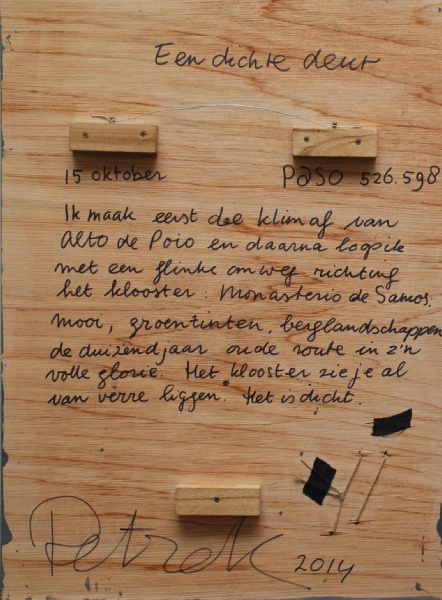 Een dichte deur
15 oktober
Paso 526.598
Ik maak eerst de klim af van
Alto de Poio en daarna loop ik
met een flinke omweg richting
het klooster: Monasterio de Samos.
Mooi, groentinten, berglandschappen
de duizend jaar oude route in z'n
volle glorie. Het klooster zie je al
van verre liggen. Het is dicht.
2014